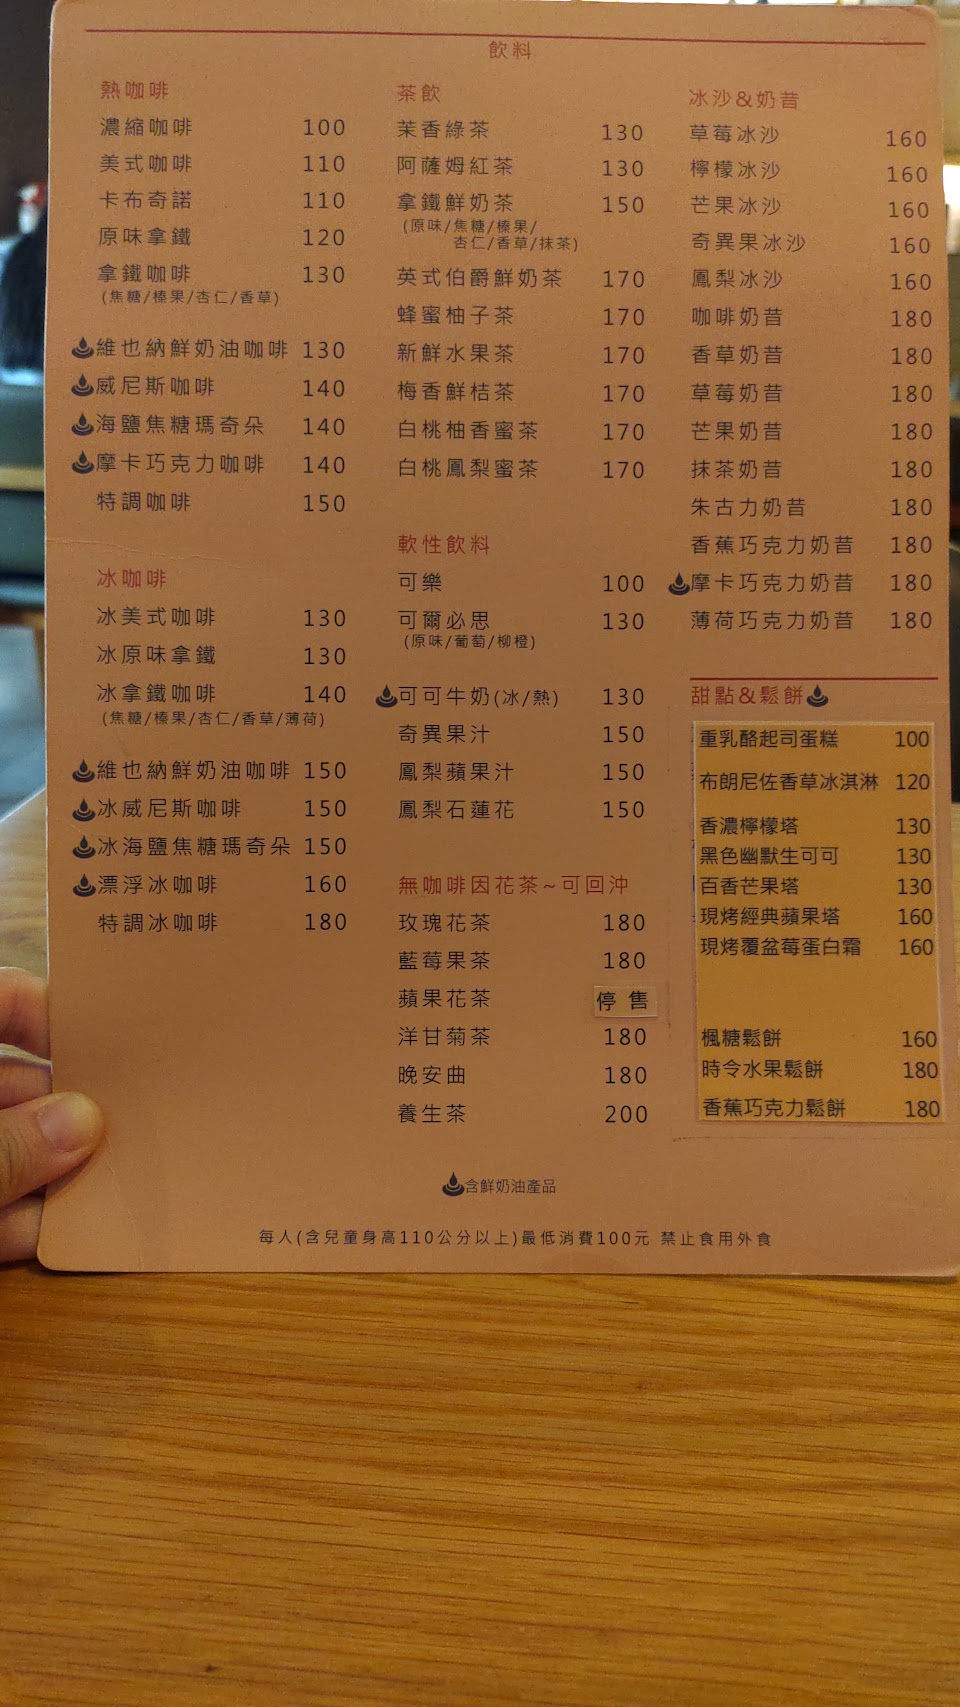 飲料
熱咖啡
濃縮咖啡 100
美式咖啡 110
卡布奇諾 110
原味拿鐵 120
拿鐵咖啡 130
(焦糖/榛果/杏仁/香草)
維也納鮮奶油咖啡 130
威尼斯咖啡 140
海鹽焦糖瑪奇朵 140
摩卡巧克力咖啡 140
特調咖啡 150
冰咖啡
冰美式咖啡 130
冰原味拿鐵 130
冰拿鐵咖啡 140
(焦糖/榛果/杏仁/香草/薄荷)
維也納鮮奶油咖啡 150
冰威尼斯咖啡 150
冰海鹽焦糖瑪奇朵 150
漂浮冰咖啡 160
特調冰咖啡 180
茶飲
茉香綠茶 130
阿薩姆紅茶 130
拿鐵鮮奶茶 150
(原味/焦糖/榛果/
杏仁/香草/抹茶)
英式伯爵鮮奶茶 170
蜂蜜柚子茶 170
新鮮水果茶 170
梅香鮮桔茶 170
白桃柚香蜜茶 170
白桃鳳梨蜜茶 170
軟性飲料
可樂 100
可爾必思 130
(原味/葡萄/柳橙)
可可牛奶(冰/熱) 130
奇異果汁 150
鳳梨蘋果汁 150
鳳梨石蓮花 150
無咖啡因花茶~可回沖
玫瑰花茶 180
藍莓果茶 180
蘋果花茶 停售
洋甘菊茶 180
晚安曲 180
養生茶 200
冰沙&奶昔
草莓冰沙 160
檸檬冰沙 160
芒果冰沙 160
奇異果冰沙 160
鳳梨冰沙 160
咖啡奶昔 180
香草奶昔 180
草莓奶昔 180
芒果奶昔 180
抹茶奶昔 180
朱古力奶昔 180
香蕉巧克力奶昔 180
摩卡巧克力奶昔 180
薄荷巧克力奶昔 180
甜點&鬆餅
重乳酪起司蛋糕 100
布朗尼佐香草冰淇淋 120
香濃檸檬塔 130
黑色幽默生可可 130
百香芒果塔 130
現烤經典蘋果塔 160
現烤覆盆莓蛋白霜 160
楓糖鬆餅 160
時令水果鬆餅 180
香蕉巧克力鬆餅 180
含鮮奶油產品
每人(含兒童身高110公分以上)最低消費100元 禁止食用外食